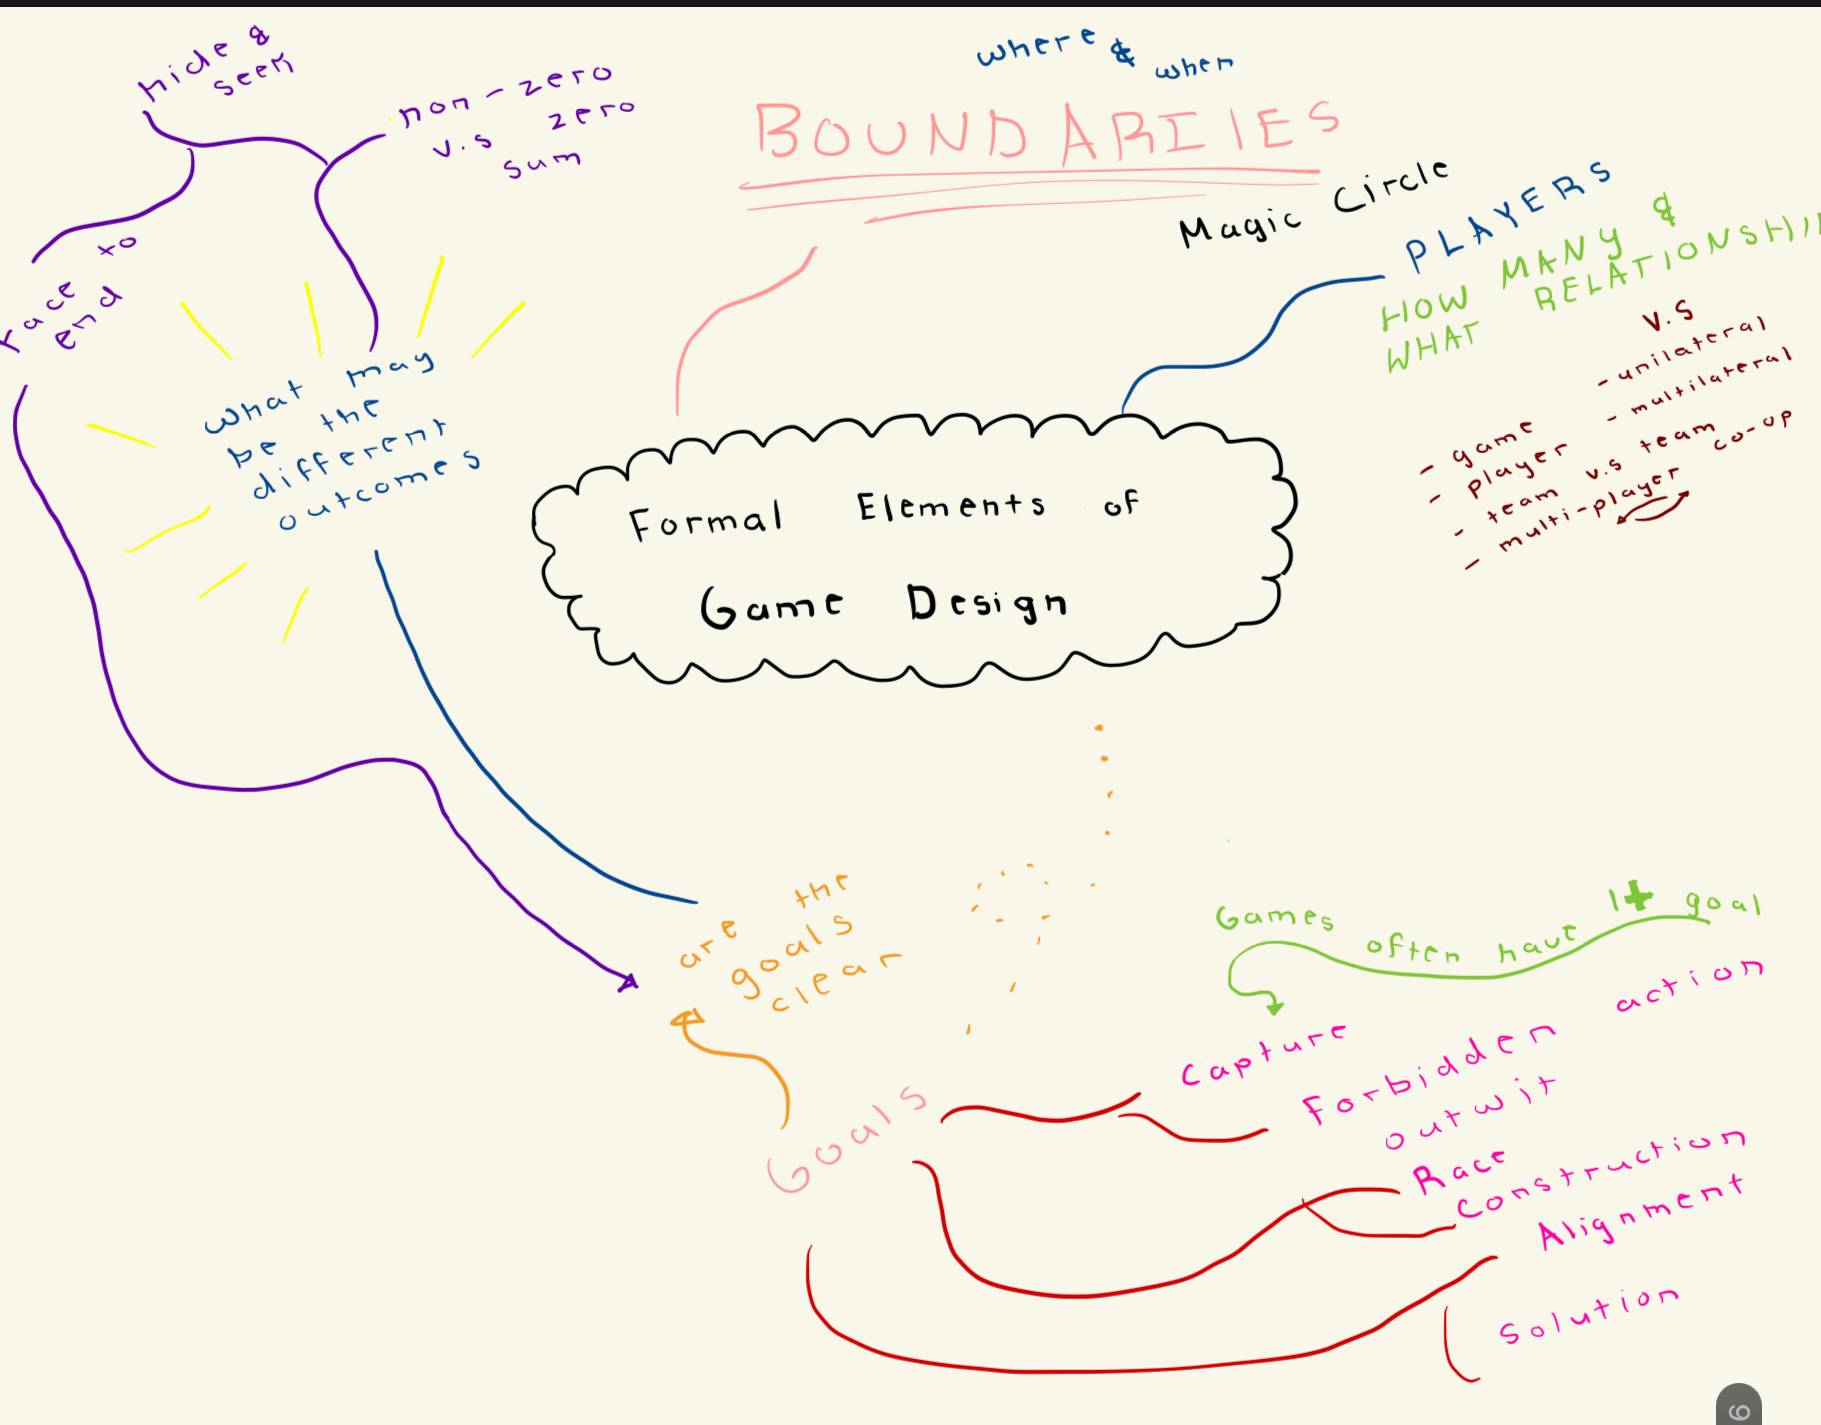 hide &
seek
non-zero
v.s zero
sum
race to
end
what may
be the
different
outcomes
where & when
BOUNDARIIES
Magic Circle
PLAYERS
HOW MANY &
WHAT RELATIONSHI
v.s
- unilateral
- multilateral
- game
- player
- team v.s team
- multi-player co-op
Formal Elements of
Game Design
are the
goals
clear
Goals
Games often have 1+ goal
Capture
Forbidden action
outwit
Race
Construction
Alignment
Solution
6